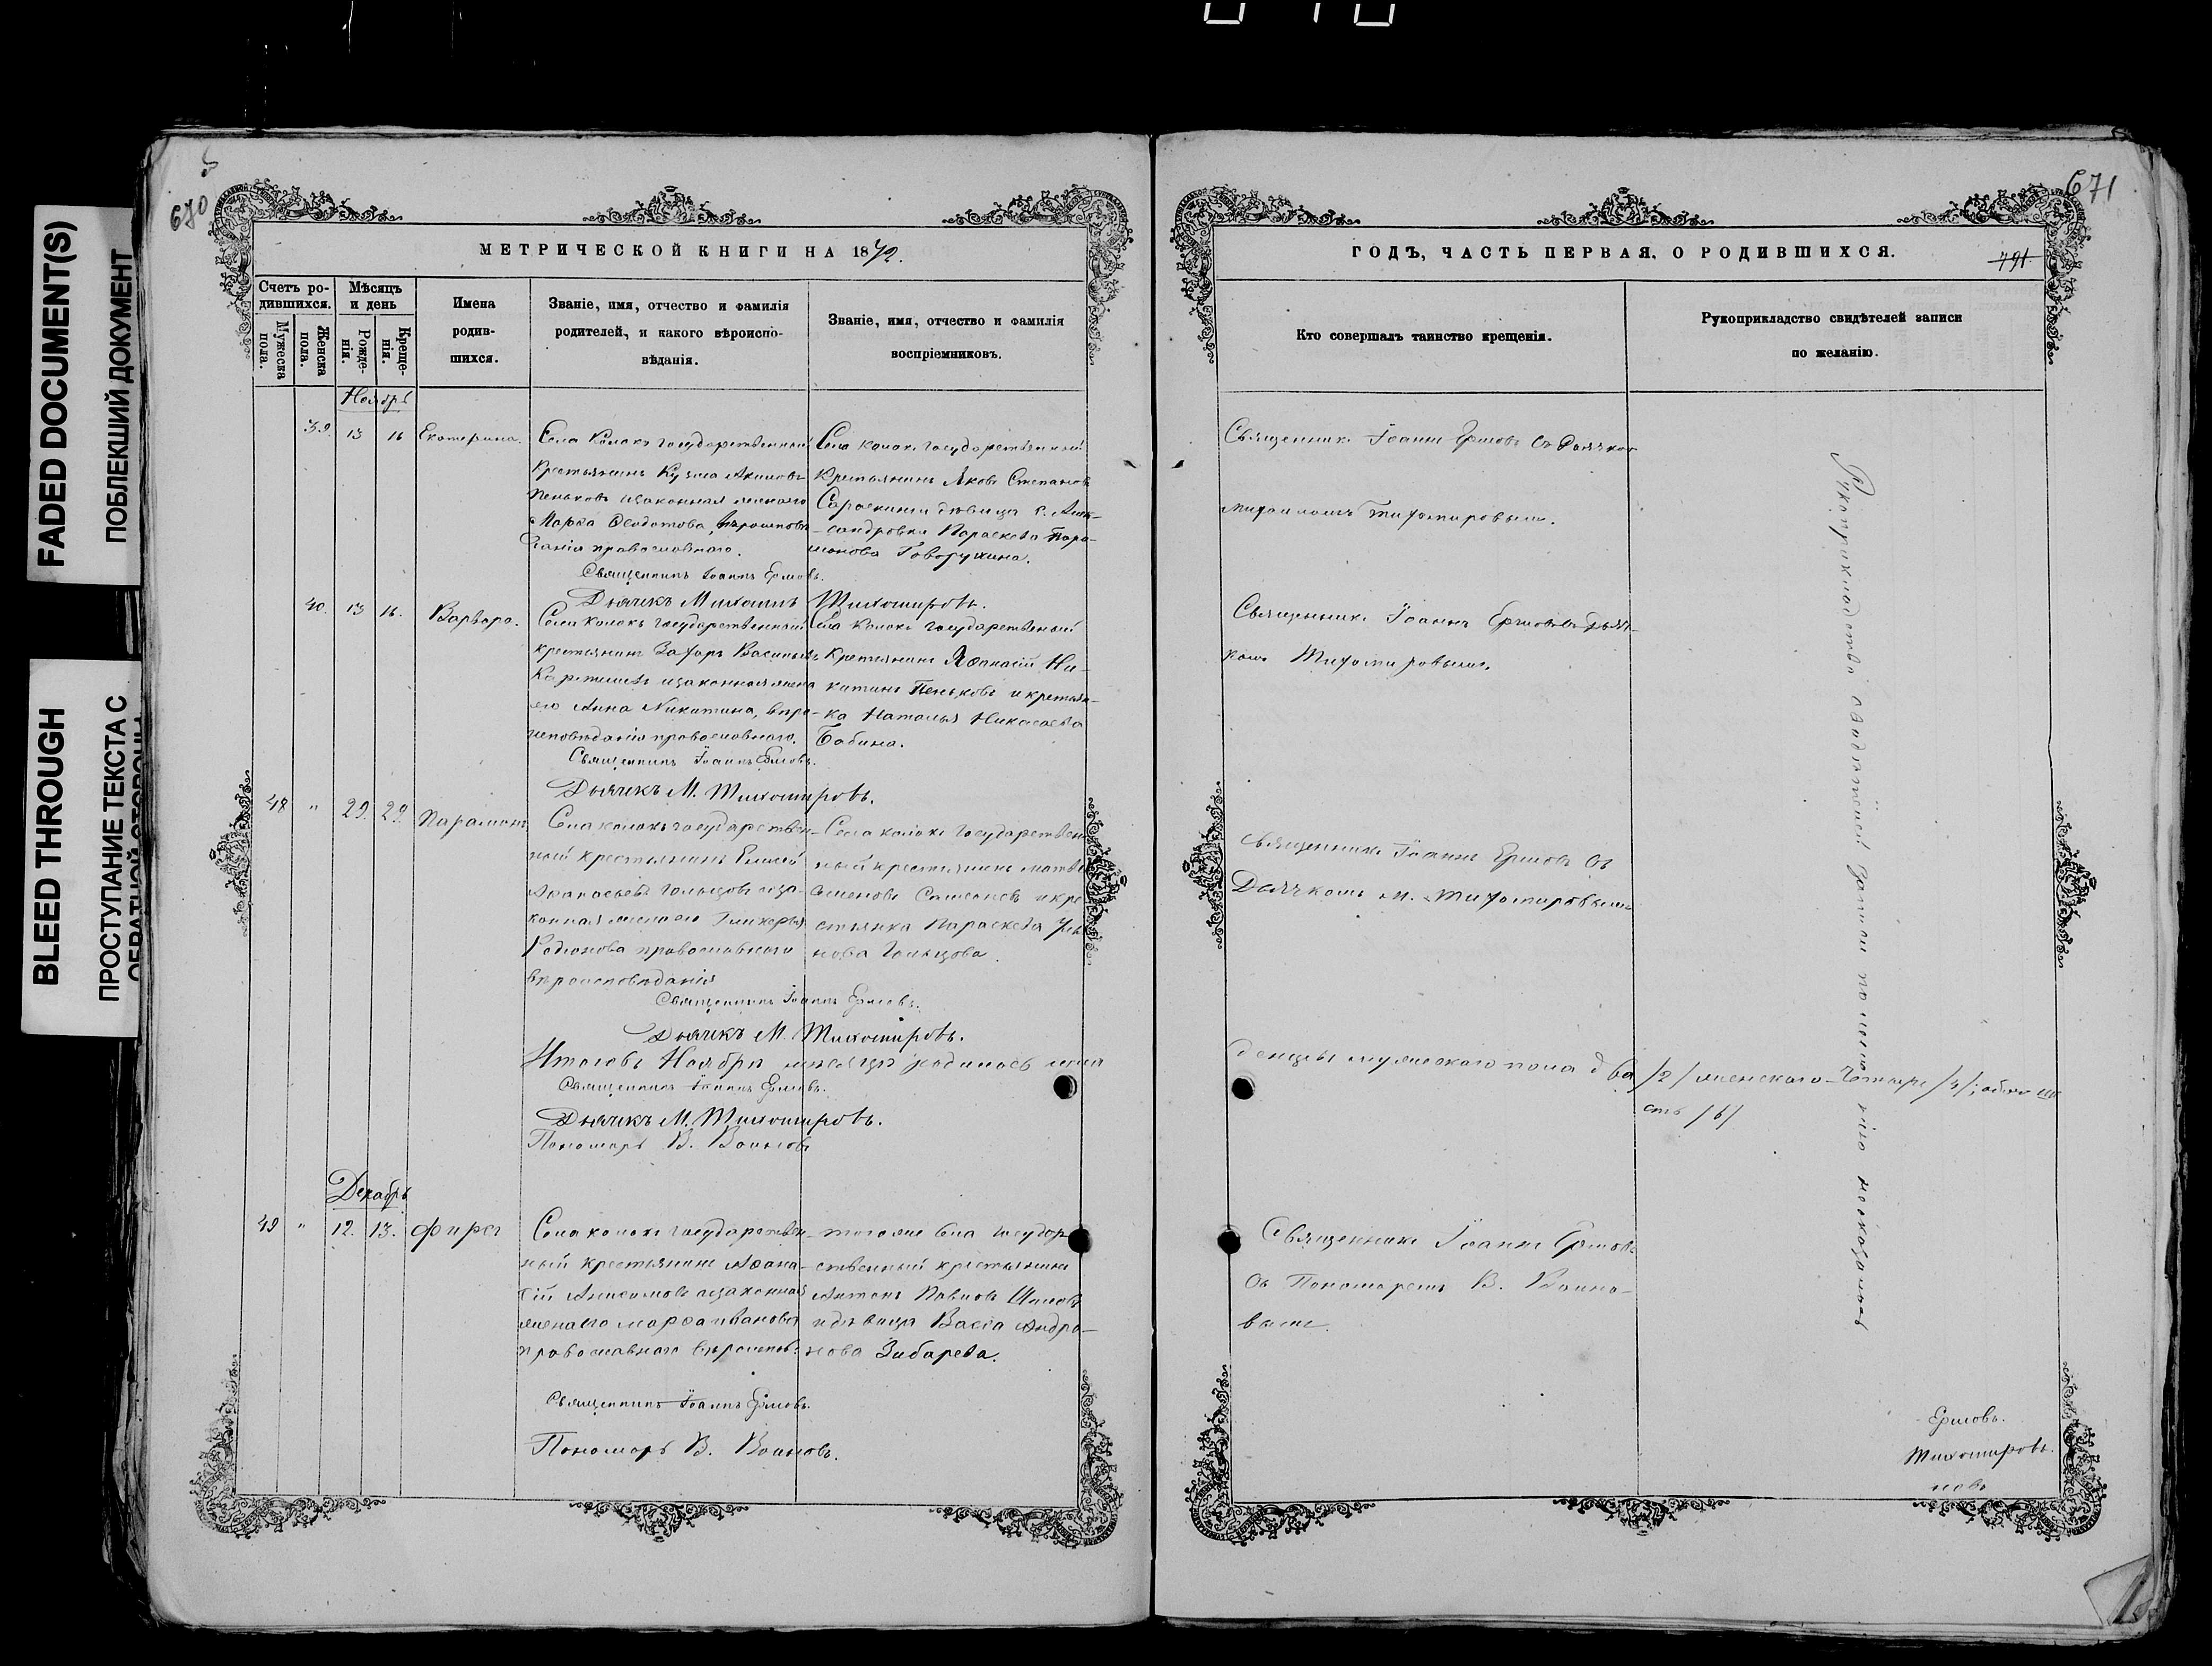 FADED DOCUMENT(S)
ПОБЛЕКШИЙ ДОКУМЕНТ
BLEED THROUGH
ПРОСТУПАНИЕ ТЕКСТА С
ОБРАТНОЙ СТОРОНЫ
670
МЕТРИЧЕСКОЙ КНИГИ НА 1872.
Счетъ ро-
дившихся.
Мужеска
пола.
Женска
пола.
Мѣсяцъ
и день
Рожде-
нія.
Креще-
нія.
Имена
родив-
шихся.
Званіе, имя, отчество и фамилія
родителей, и какого вѣроиспо-
вѣданія.
Званіе, имя, отчество и фамилія
воспріемниковъ.
Ноябрь
39. 13 16 Екатерина.
Села Колокъ государственный
крестьянинъ Кузма Акимовъ
Пеньковъ изаконная жена его
Марѳа Ѳеодотова, вѣроисповѣ
данія православнаго.
Села Колокъ государственный
крестьянинъ Яковъ Степановъ
дѣвица с. Алек-
сандровки Параскева Пара-
монова
Священникъ Іоаннъ Ермовъ.
Дьячекъ Михаилъ Тихомировъ.
40. 13 16. Варвара.
Села Колокъ государственный
крестьянинъ Захаръ Васильевъ
изаконная жена
его Анна Никитина, вѣро-
исповѣданія православнаго.
Села Колокъ государственный
крестьянинъ Аѳанасій Ни-
китинъ Пеньковъ и крестьян-
ка Наталья Николаева
Бабина.
Священникъ Іоаннъ Ермовъ.
Дьячекъ М. Тихомировъ.
48 " 29. 29. Парамонъ
Села Колокъ государствен-
ный крестьянинъ Елисей
Аѳанасьевъ Гольцовъ иза-
конная жена его Гликерья
Родіонова православнаго
вѣроисповѣданія
Села Колокъ государствен
ный крестьянинъ Матвѣй
Семеновъ и кре
стьянка Параскева
нова Гольцова.
Священникъ Іоаннъ Ермовъ.
Дьячекъ М. Тихомировъ.
Итого въ Ноябрѣ мѣсяцѣ родилось мла
Священникъ Іоаннъ Ермовъ.
Дьячекъ М. Тихомировъ.
Пономарь В. Воиновъ
Декабрь
49 " 12. 13. Фирсъ
Села Колокъ государствен-
ный крестьянинъ Аѳана-
сій Анисимовъ изаконная
жена его Марѳа Иванова
православнаго вѣроиспов.
того же села государ
ственный крестьянинъ
Антонъ Павловъ
и дѣвица Васса Андро-
нова Зибарева.
Священникъ Іоаннъ Ермовъ.
Пономарь В. Воиновъ.
671
ГОДЪ, ЧАСТЬ ПЕРВАЯ, О РОДИВШИХСЯ.
791
Кто совершалъ таинство крещенія.
Рукоприкладство свидѣтелей записи
по желанію.
Священникъ Іоаннъ Ермовъ съ Дьячкомъ
Михаиломъ Тихомировымъ.
Священникъ Іоаннъ Ермовъ съ Дьяч-
комъ Тихомировымъ.
Священникъ Іоаннъ Ермовъ съ
Дьячкомъ М. Тихомировымъ
денцевъ мужескаго пола два /2/ женскаго четыре /4/; обоего ше
сть /6/
Священникъ Іоаннъ Ермовъ
съ Пономаремъ В. Воино-
вымъ.
Рукоприкладства свидѣтелей записи по желанію не оказалось
Ермовъ.
Тихомировъ.
новъ